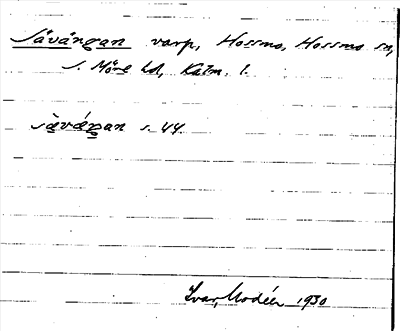 Såvångan varp, Hossmo, Hossmo sn,
S. Möre hd, Kalm. l.
såvángan s. 44.
Ivar Modéer 1930